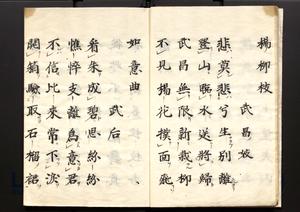 楊柳枝　武昌妓
悲莫悲兮生別離
登山臨水送將歸
武昌無限新栽柳
不見楊花撲面飛
如意曲　武后
看朱成碧思紛紛
憔悴支離為憶君
不信比來常下淚
開箱驗取石榴裙